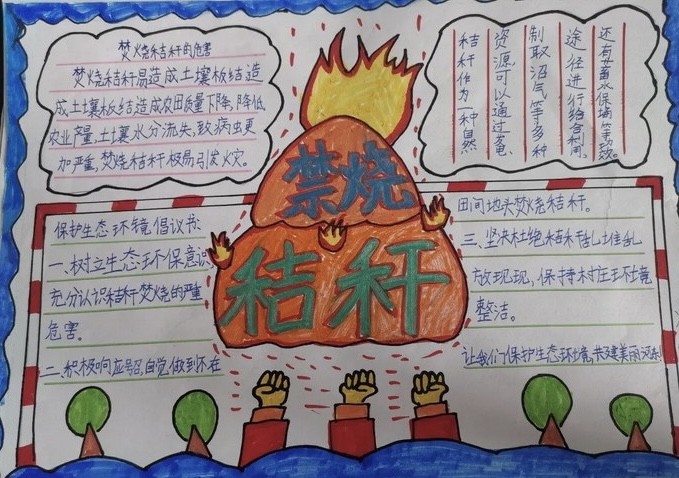 焚烧秸秆的危害
焚烧秸秆易造成土壤板结造
成土壤板结造成农田质量下降,降低
农业产量,土壤水分流失,致病虫更
加严重,焚烧秸秆极易引发火灾。
秸秆作为一种自然
资源可以通过畜、
制取沼气等多种
途径进行综合利用.
还有蓄水保墒等功效。
禁烧
秸秆
保护生态环境倡议书
一、树立生态环保意识
充分认识秸秆焚烧的严重
危害。
二、积极响应号召,自觉做到不在
田间地头焚烧秸秆。
三、坚决杜绝秸秆乱堆乱
放现现,保持村庄环境
整洁。
让我们保护生态环境,共建美丽